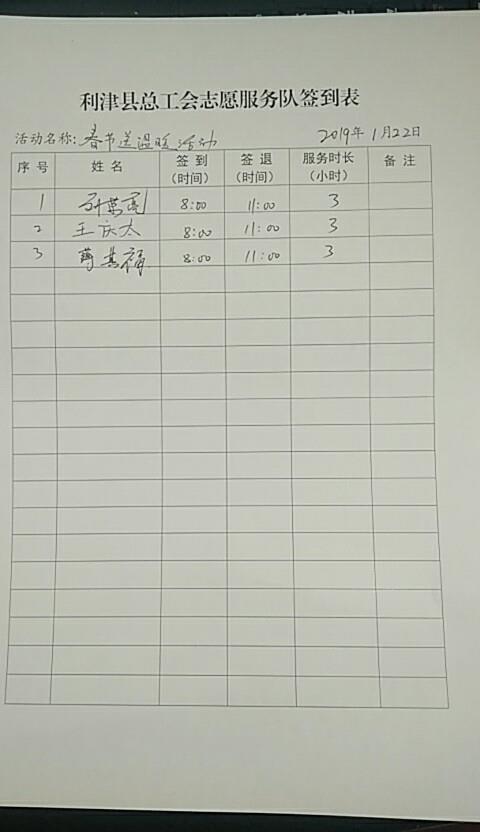 利津县总工会志愿服务队签到表
活动名称:春节送温暖活动 2019年1月22日
序号 姓名 签到(时间) 签退(时间) 服务时长(小时) 备注
1 8:00 11:00 3
2 王庆太 8:00 11:00 3
3 薄其福 8:00 11:00 3